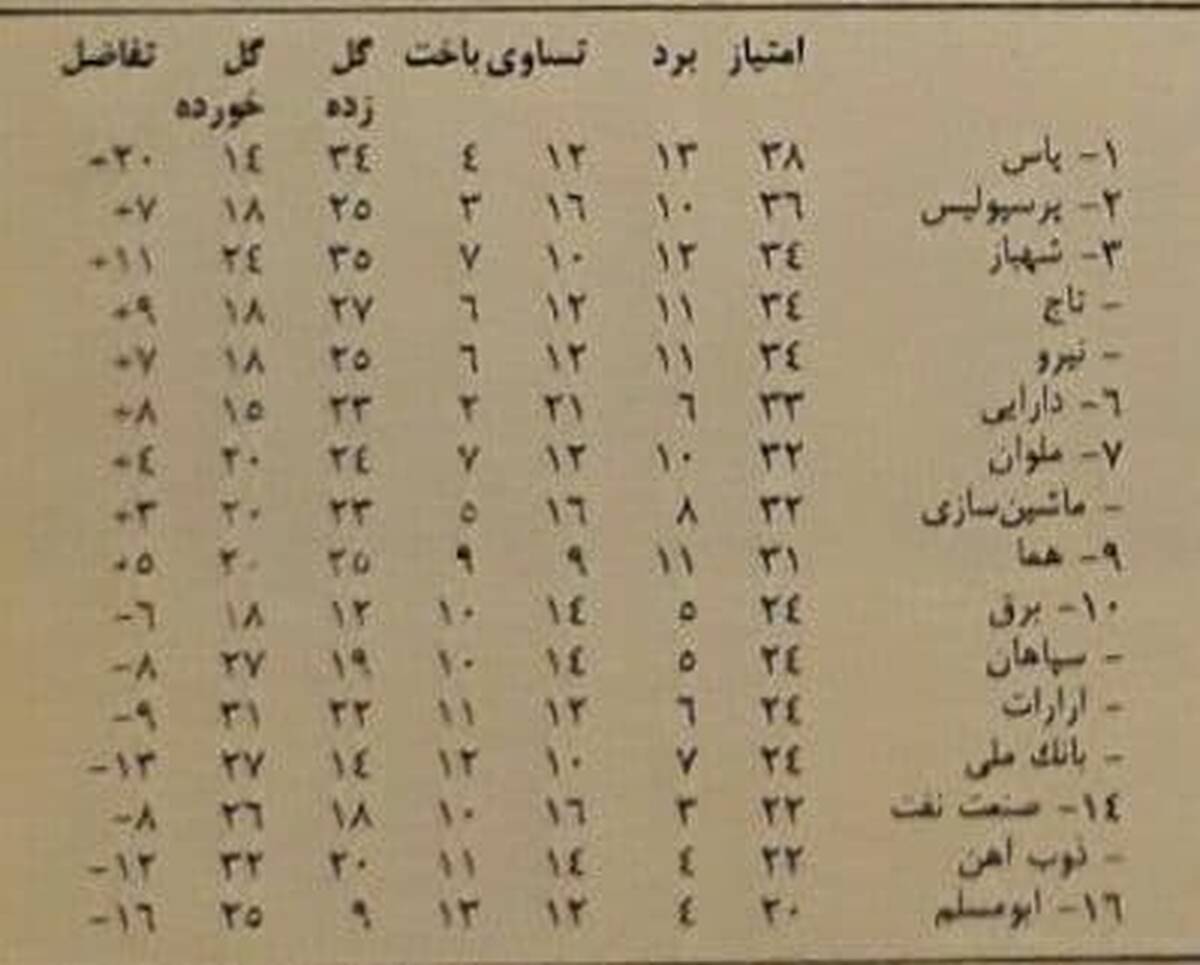 امتیاز برد تساوی باخت گل زده گل خورده تفاضل
۱- پاس ۳۸ ۱۳ ۱۲ ٤ ۳٤ ۱٤ ۲۰+
۲- پرسپولیس ۳٦ ۱۰ ۱٦ ۳ ۲۵ ۱۸ ۷+
۳- شهباز ۳٤ ۱۲ ۱۰ ۷ ۳۵ ۲٤ ۱۱+
- تاج ۳٤ ۱۱ ۱۲ ٦ ۲۷ ۱۸ ۹+
- نیرو ۳٤ ۱۱ ۱۲ ٦ ۲۵ ۱۸ ۷+
٦- دارایی ۳۳ ٦ ۲۱ ۲ ۲۳ ۱۵ ۸+
۷- ملوان ۳۲ ۱۰ ۱۲ ۷ ۲٤ ۲۰ ٤+
- ماشین‌سازی ۳۲ ۸ ۱٦ ۵ ۲۳ ۲۰ ۳+
۹- هما ۳۱ ۱۱ ۹ ۹ ۲۵ ۲۰ ۵+
۱۰- برق ۲٤ ۵ ۱٤ ۱۰ ۱۲ ۱۸ ٦-
- سپاهان ۲٤ ۵ ۱٤ ۱۰ ۱۹ ۲۷ ۸-
- ارارات ۲٤ ٦ ۱۲ ۱۱ ۲۲ ۳۱ ۹-
- بانك ملی ۲٤ ۷ ۱۰ ۱۲ ۱٤ ۲۷ ۱۳-
۱٤- صنعت نفت ۲۲ ۳ ۱٦ ۱۰ ۱۸ ۲٦ ۸-
- ذوب اهن ۲۲ ٤ ۱٤ ۱۱ ۲۰ ۳۲ ۱۲-
۱٦- ابومسلم ۲۰ ٤ ۱۲ ۱۳ ۹ ۲۵ ۱٦-